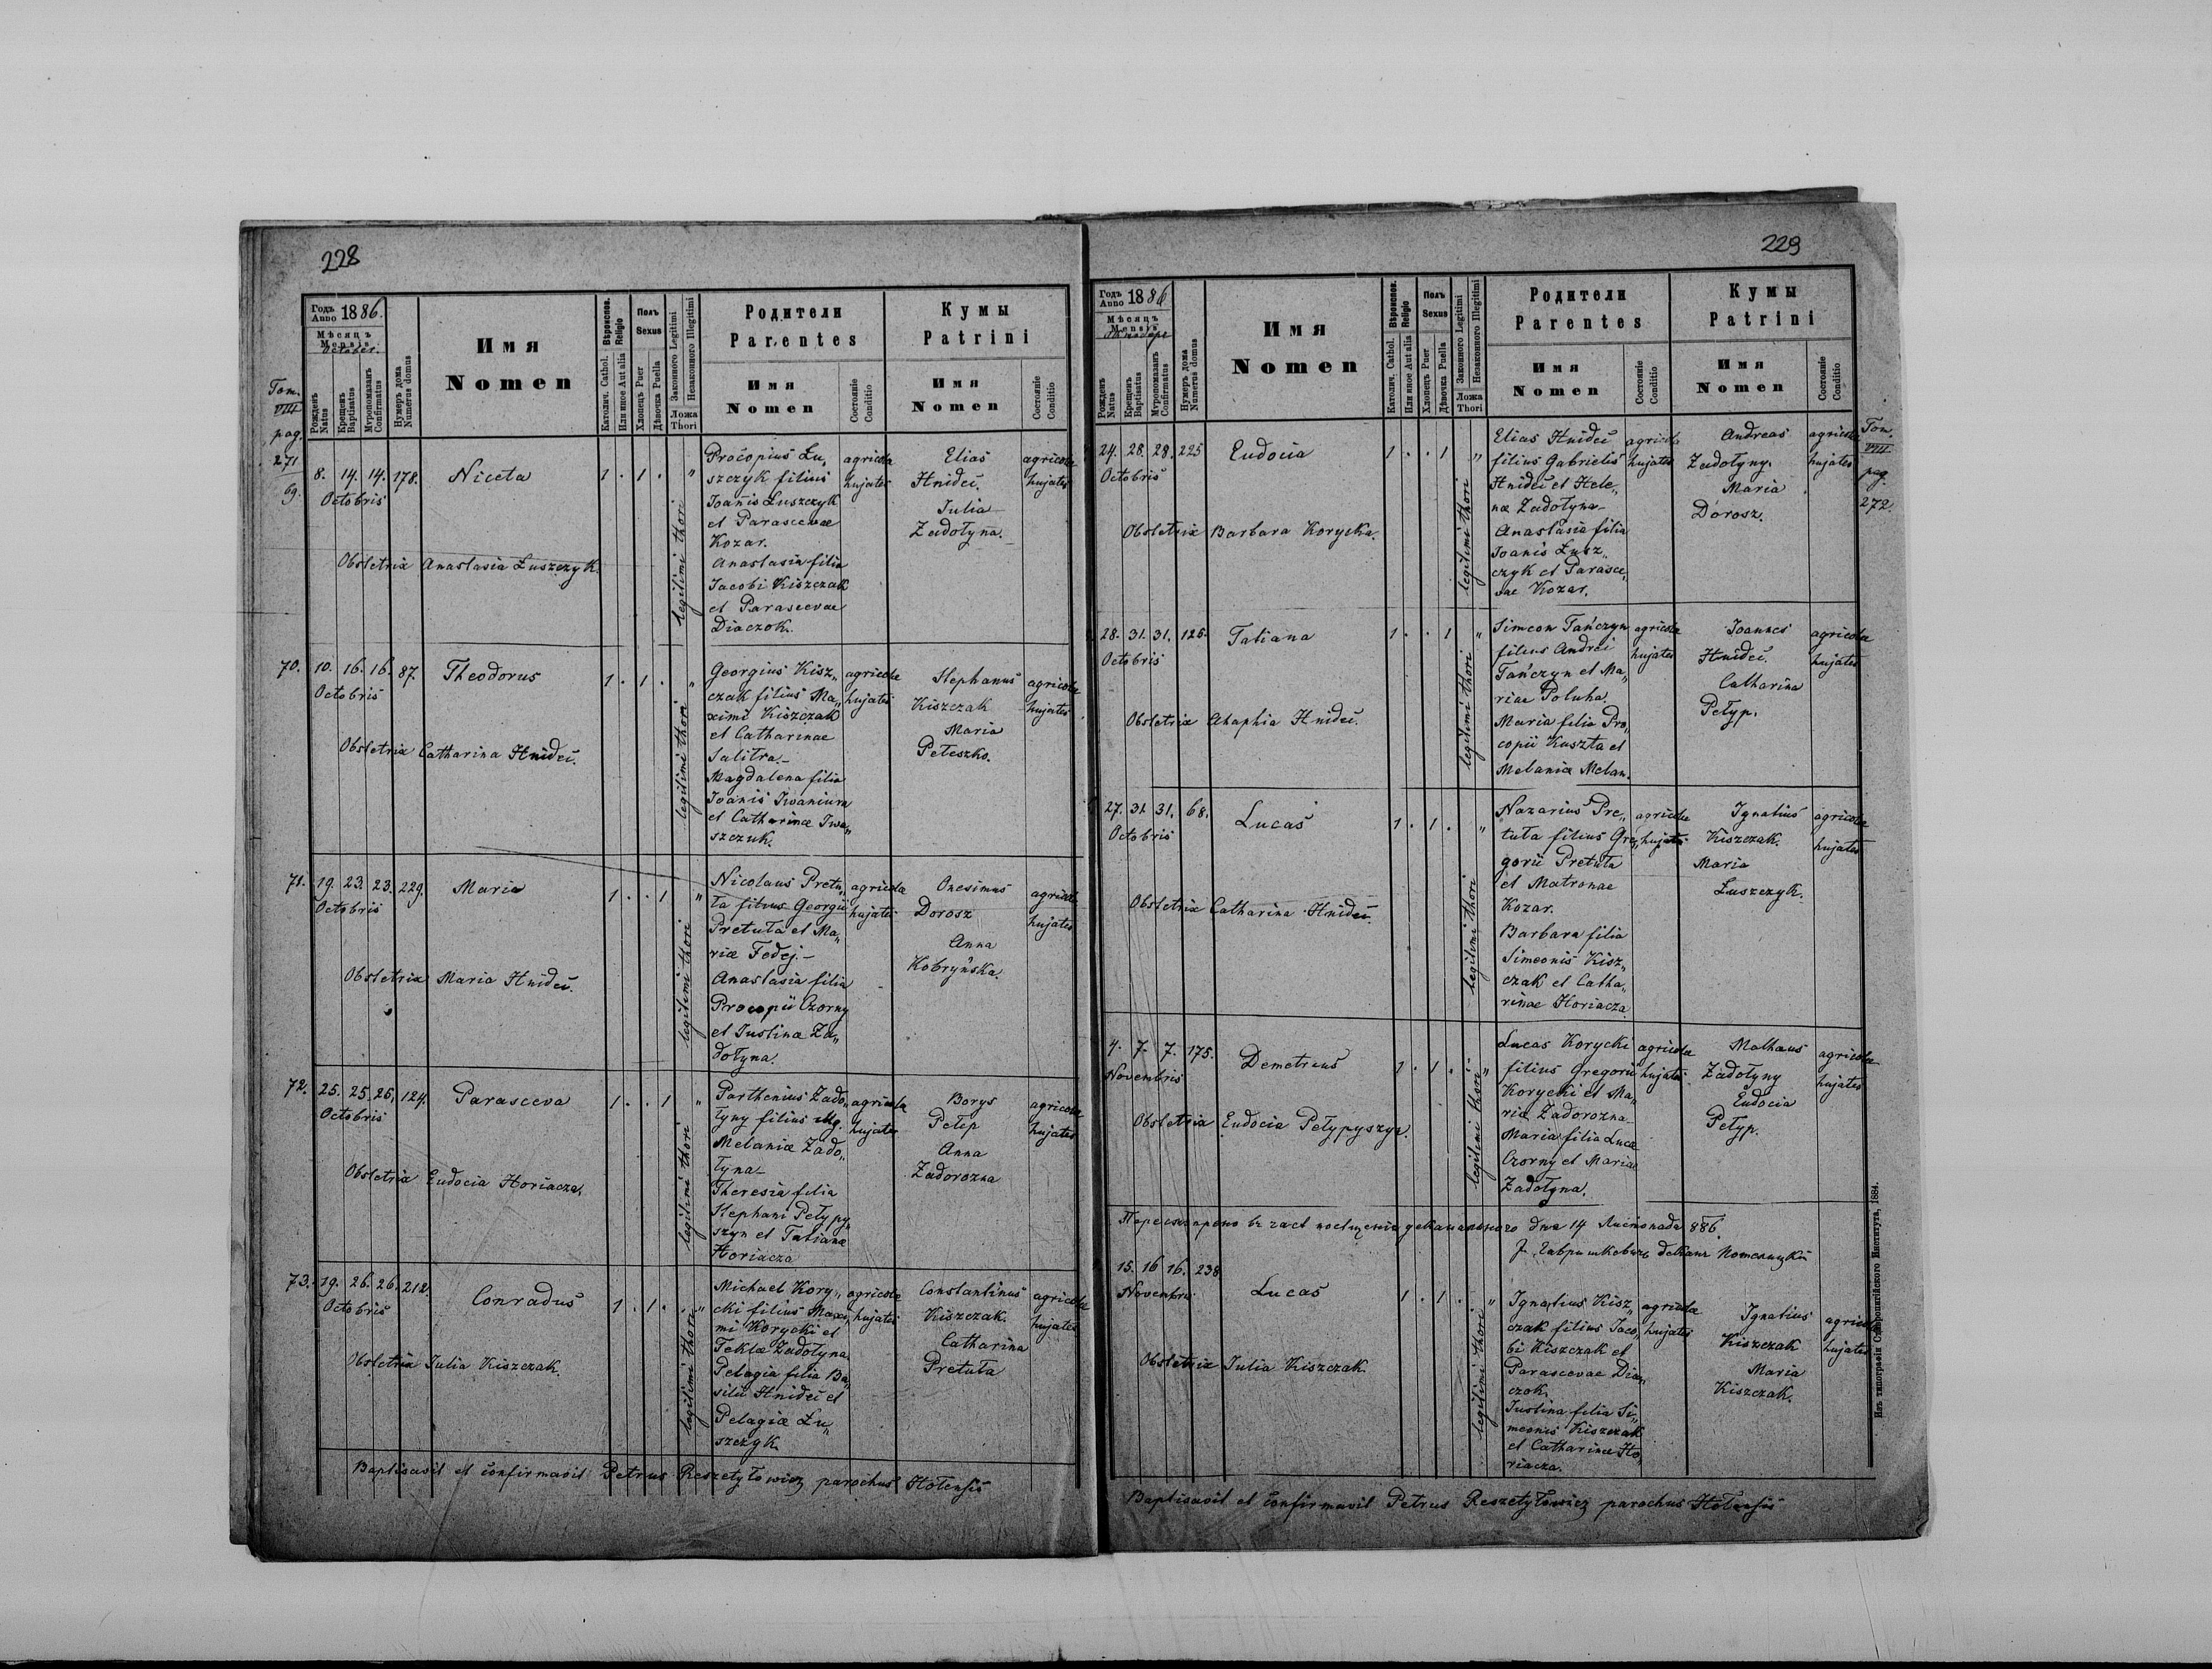 228
Годъ Anno 1886.
Мѣсяцъ
Mensis
October.
Рожденъ Natus
Крещенъ Baptisatus
Муропомазанъ Confirmatus
Нумеръ дома Numerus domus
Имя
Nomen
Вѣроисповѣд. Religio
Католич. Cathol.
Или иное Aut alia
Полъ
Sexus
Хлопецъ Puer
Дѣвочка Puella
Законного Legitimi
Незаконного Illegitimi
Ложа
Thori
Родители
Parentes
Имя
Nomen
Состояніе Conditio
Кумы
Patrini
Имя
Nomen
Состояніе Conditio
Tom.
VIII
pag.
271
69.
8. 14. 14. 178. Niceta 1 . 1 . "
Octobris
Obstetrix Anastasia Łuszczyk.
legitimi thori
Procopius Łu„
szczyk filius
Joanis Łuszczyk
et Parascevae
Kozar.
Anastasia filia
Jacobi Kiszczak
et Parascevae
Diaczok.
agricola
hujates
Elias
Hnideć.
Julia
Zadołyna.
agricola
hujates
70. 10. 16. 16. 87. Theodorus 1 . 1 . "
Octobris
Obstetrix Catharina Hnideć.
legitimi thori
Georgius Kisz„
czak filius Ma„
ximi Kiszczak
et Catharinae
Salitra.–
Magdalena filia
Joanis Iwaniura
et Catharinae Iwa„
szczuk.
agricola
hujates
Stephanus
Kiszczak
Maria
Peteszko.
agricola
hujates
71. 19. 23. 23. 229. Maria 1 . . 1 "
Octobris
Obstetrix Maria Hnideć.
legitimi thori
Nicolaus Pretu„
ła filius Georgii
Pretuła et Ma„
riæ Fedej.–
Anastasia filia
Procopii Czorny
et Justinæ Za„
dołyna.
agricola
hujates
Onesimus
Dorosz
Anna
Kobryńska.
agricola
hujates
72. 25. 25. 26. 124. Parasceva 1 . . 1 "
Octobris
Obstetrix Eudocia Horiacza.
legitimi thori
Parthenius Zado„
łyny filius illeg.
Melaniæ Zado„
łyna–
Theresia filia
Stephani Petypy
szyn et Tatianæ
Horiacza
agricola
hujates
Borys
Petep
Anna
Zadorozna
agricola
hujates
73. 19. 26. 26. 212. Conradus 1 . 1 . "
Octobris
Obstetrix Julia Kiszczak.
legitimi thori
Michael Kory„
cki filius Maxi„
mi Korycki et
Teklæ Zadołyna
Pelagia filia Ba„
silii Hnideć et
Pelagiæ Łu„
szczyk.
agricola
hujates
Constantinus
Kiszczak.
Catharina
Pretuła
agricola
hujates
Baptisavit et confirmavit Petrus Reszetyłowicz parochus Hotensis
229
Годъ Anno 1886
Мѣсяцъ
Mensis
Рожденъ Natus
Крещенъ Baptisatus
Муропомазанъ Confirmatus
Нумеръ дома Numerus domus
Имя
Nomen
Вѣроисповѣд. Religio
Католич. Cathol.
Или иное Aut alia
Полъ
Sexus
Хлопецъ Puer
Дѣвочка Puella
Законного Legitimi
Незаконного Illegitimi
Ложа
Thori
Родители
Parentes
Имя
Nomen
Состояніе Conditio
Кумы
Patrini
Имя
Nomen
Состояніе Conditio
Tom.
VIII
pag.
272.
24. 28. 28. 225 Eudocia 1 . . 1 "
Octobris
Obstetrix Barbara Korycka.
legitimi thori
Elias Hnideć
filius Gabrielis
Hnideć et Hele„
næ Zadołyna–
Anastasia filia
Joanis Łusz„
czyk et Parasce„
vae Kozar.
agricola
hujates
Andreas
Zadołyny.
Maria
Dorosz.
agricola
hujates
28. 31. 31. 126. Tatiana 1 . . 1 "
Octobris
Obstetrix Ahaphia Hnideć.
legitimi thori
Simeon Tańczyn
filius Andrei
Tańczyn et Ma„
riae Poluha.
Maria filia Pro„
copii Kuszta et
Melaniæ Melan.
agricola
hujates
Joannes
Hnideć.
Catharina
Petyp.
agricola
hujates
27. 31. 31. 68. Lucas 1 . 1 . "
Octobris
Obstetrix Catharina Hnideć.
legitimi thori
Nazarius Pre„
tuła filius Gre„
gorii Pretuła
et Matronae
Kozar.
Barbara filia
Simeonis Kisz„
czak et Catha„
rinae Horiacza
agricola
hujates
Ignatius
Kiszczak.
Maria
Łuszczyk.
agricola
hujates
4. 7. 7. 175. Demetrius 1 . 1 . "
Novembris
Obstetrix Eudocia Petypyszyn.
legitimi thori
Lucas Korycki
filius Gregorii
Korycki et Ma„
riæ Zadorozna
Maria filia Lucæ
Czorny et Mariæ
Zadołyna.
agricola
hujates
Mathaus
Zadołyny
Eudocia
Petyp.
agricola
hujates
дня 14 Листопада 886.
15. 16. 16. 238 Lucas 1 . 1 . "
Novembris
Obstetrix Julia Kiszczak.
legitimi thori
Ignatius Kisz„
czak filius Jaco„
bi Kiszczak et
Parascevae Dia„
czok.
Justina filia Si„
meonis Kiszczak
et Catharinæ Ho„
riacza.
agricola
hujates
Ignatius
Kiszczak
Maria
Kiszczak.
agricola
hujates
Baptisavit et confirmavit Petrus Reszetyłowicz parochus Hotensis
Изъ типографіи Ставропигійского Института, 1884.